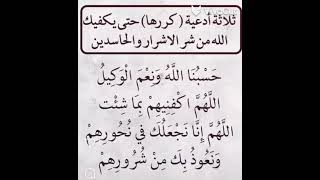 ثلاثة أدعية (كررها) حتى يكفيك
الله من شر الاشرار والحاسدين
حَسْبُنَا اللَّهُ وَنَعْمَ الْوَكِيلُ
اللَّهُمَّ اكْفِنِيهِمْ بِمَا شِئْت
اللَّهُمَّ إِنَّا نَجْعَلُكَ فِي نُحُورِهِمْ
وَنَعُوذُ بِكَ مِنْ شُرُورِهِمْ